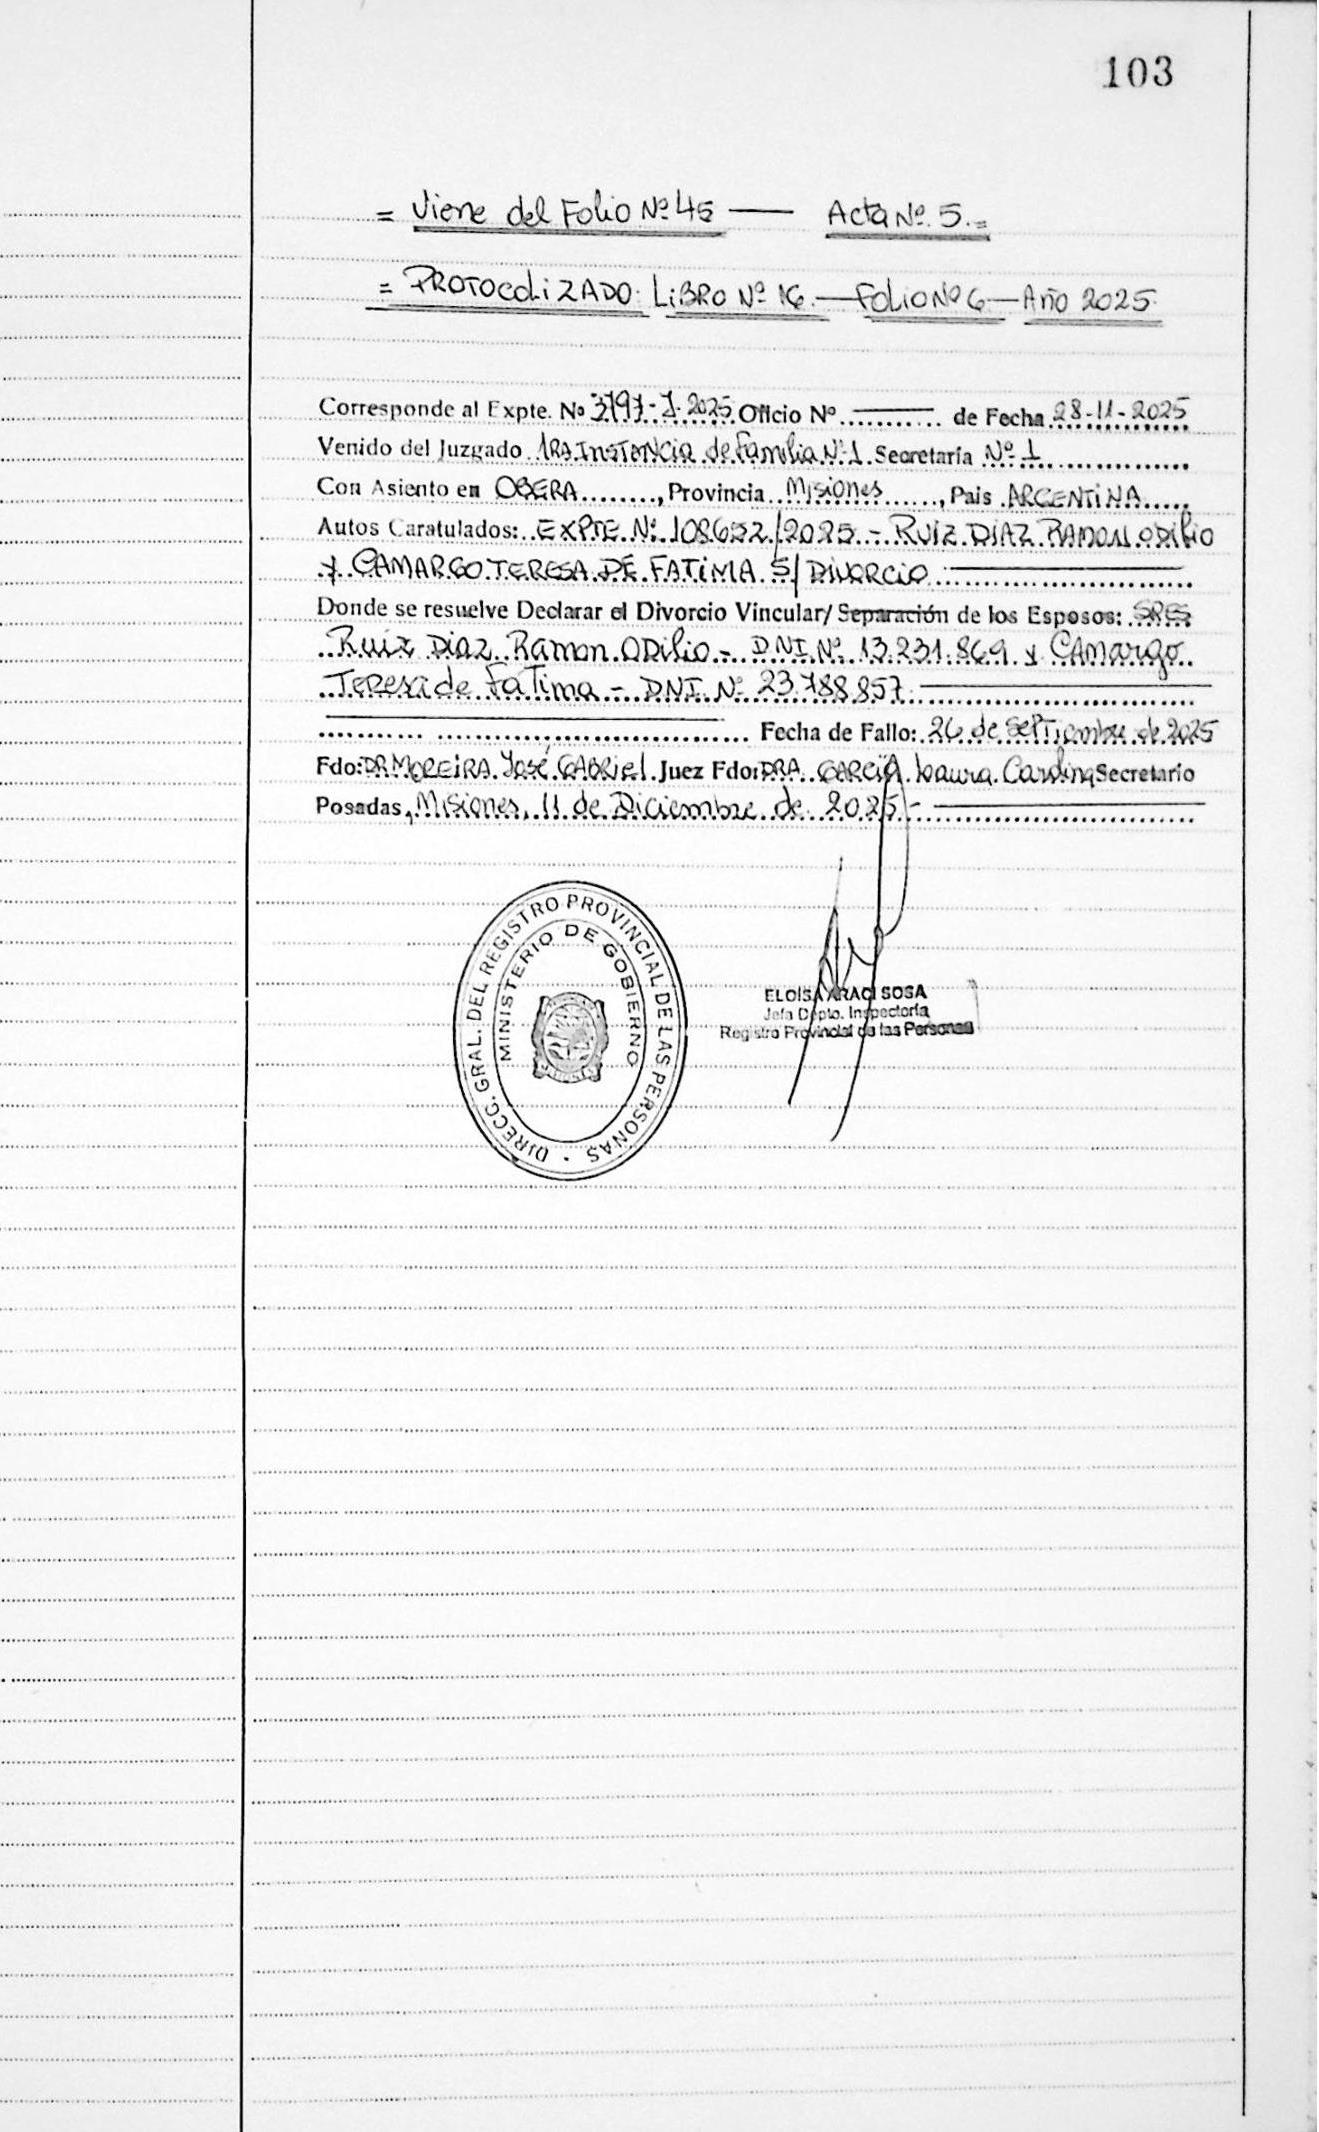 103
= Viene del Folio Nº 45 — Acta Nº 5.=
= PROTOCOLIZADO: LIBRO Nº 16.— FOLIO Nº 6 — Año 2025
Corresponde al Expte. Nº 3797-J-2025 Oficio Nº ........... de Fecha 28-11-2025
Venido del Juzgado 1RA Instancia de Familia Nº 1 Secretaría Nº 1
Con Asiento en OBERA........, Provincia Misiones ......, Pais ARGENTINA.....
Autos Caratulados: EXPTE Nº 108652/2025.- RUIZ DIAZ RAMON ODILIO
y CAMARGO TERESA DE FATIMA S/ DIVORCIO
Donde se resuelve Declarar el Divorcio Vincular/ Separación de los Esposos: SRES
Ruiz Diaz Ramon Odilio - DNI Nº 13.231.869 y Camargo
Teresa de Fatima - DNI Nº 23.788.857
Fecha de Fallo: 26 de Septiembre de 2025
Fdo: DR MOREIRA José GABRIEL Juez Fdo: DRA. GARCÍA Laura Carolina Secretario
Posadas, Misiones, 11 de Diciembre de 2025 -
DIRECC. GRAL. DEL REGISTRO PROVINCIAL DE LAS PERSONAS
MINISTERIO DE GOBIERNO
ELOISA ARACI SOSA
Jefa Dpto. Inspectoría
Registro Provincial de las Personas